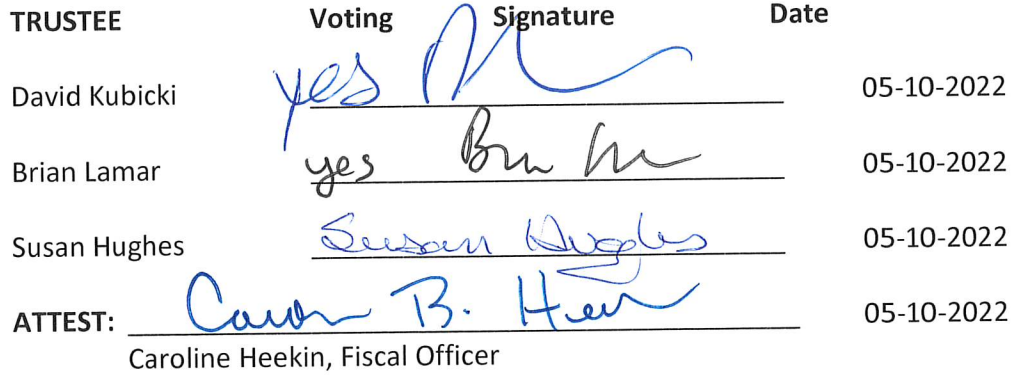 TRUSTEE Voting Signature Date
David Kubicki yes 05-10-2022
Brian Lamar yes 05-10-2022
Susan Hughes Susan Hughes 05-10-2022
ATTEST: B. 05-10-2022
Caroline Heekin, Fiscal Officer